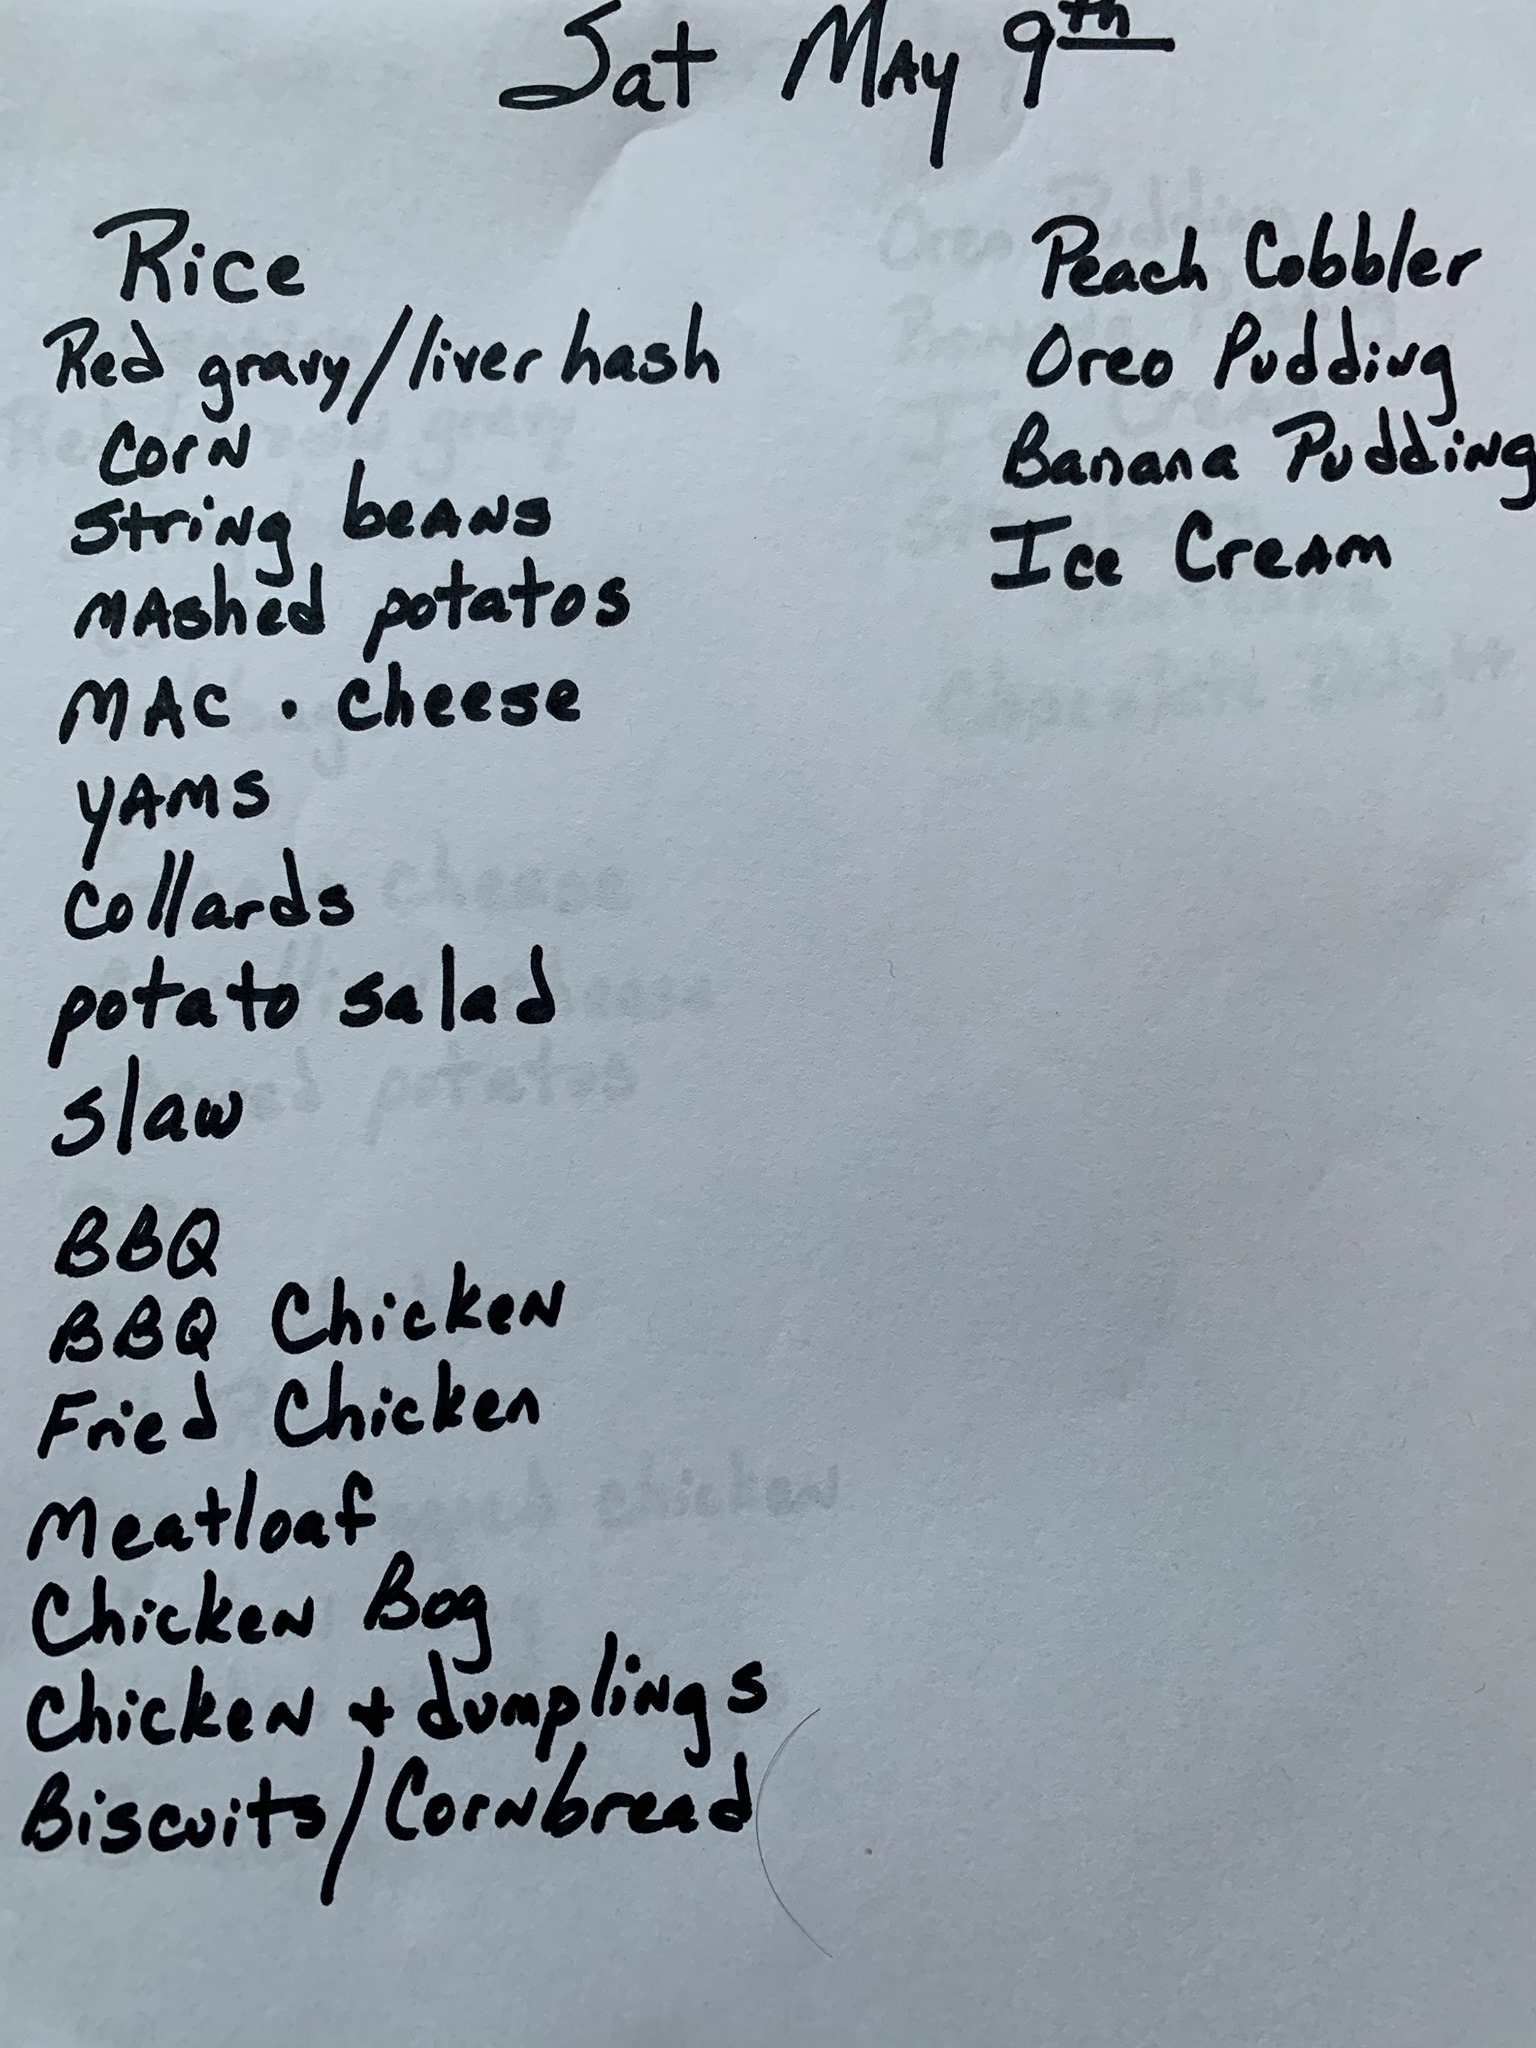 Sat May 9th
Rice
Red gravy/liver hash
Corn
String beans
Mashed potatos
MAC • cheese
YAMS
Collards
potato salad
slaw
BBQ
BBQ Chicken
Fried Chicken
Meatloaf
Chicken Bog
Chicken + dumplings
Biscuits/Cornbread
Peach Cobbler
Oreo Pudding
Banana Pudding
Ice Cream